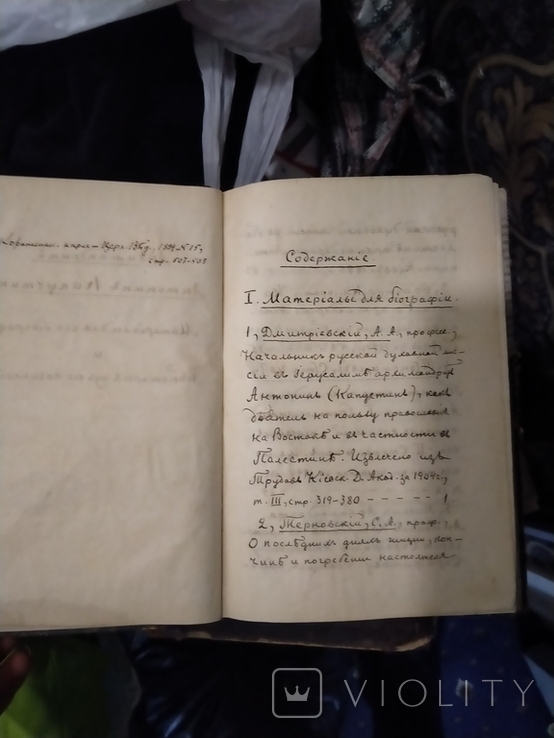 церк. Вѣд. 1894, № 15,
стр. 503-505
Содержаніе
I. Матеріалы для біографіи.
1, Дмитріевскій, А. А., профес.,
Начальникъ русской духовной мис-
сіи въ Іерусалимѣ архимандритъ
Антонинъ (Капустинъ), какъ
дѣятель на пользу православія
на Востокѣ и въ частности въ
Палестинѣ. Извлечено изъ
Трудовъ Кіевск. Д. Акад. за 1904 г.,
т. III, стр. 319-380 - - - - - 1
2, Терновскій, С. А., проф.,
О послѣднихъ дняхъ жизни, кон-
чинѣ и погребеніи настоятеля
VIOLITY